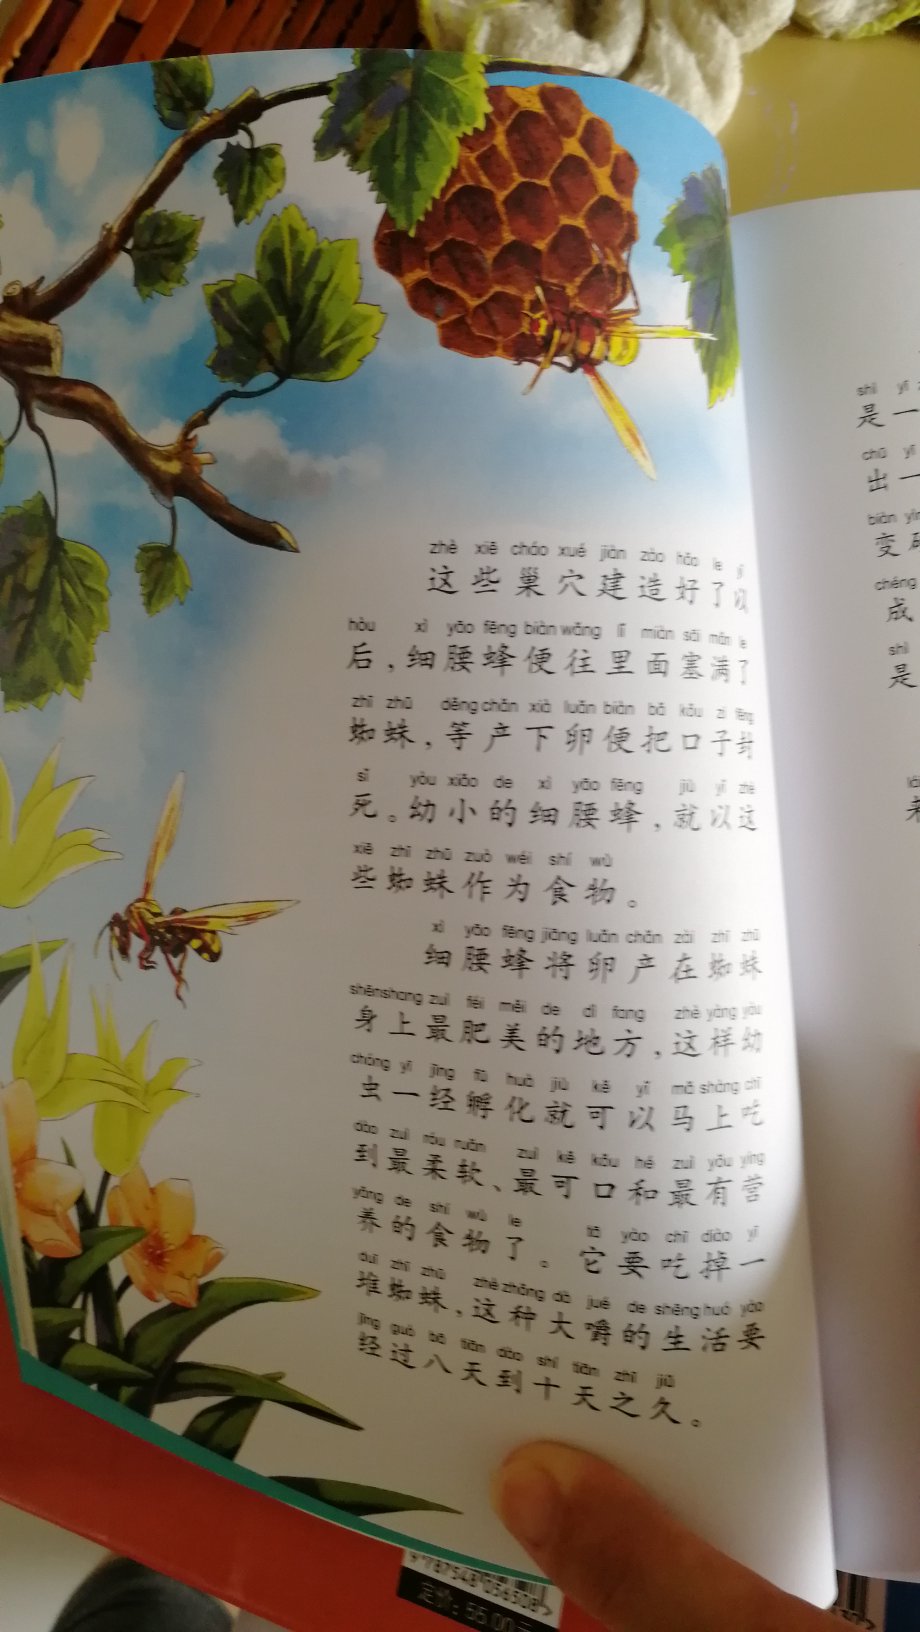 zhè xiē cháo xué jiàn zào hǎo le yǐ
这些巢穴建造好了以
hòu xì yāo fēng biàn wǎng lǐ miàn sāi mǎn le
后，细腰蜂便往里面塞满了
zhī zhū děng chǎn xià luǎn biàn bǎ kǒu zi fēng
蜘蛛，等产下卵便把口子封
sǐ yòu xiǎo de xì yāo fēng jiù yǐ zhè
死。幼小的细腰蜂，就以这
xiē zhī zhū zuò wéi shí wù
些蜘蛛作为食物。
xì yāo fēng jiāng luǎn chǎn zài zhī zhū
细腰蜂将卵产在蜘蛛
shēnshang zuì féi měi de dì fang zhè yàng yòu
身上最肥美的地方，这样幼
chóng yī jīng fū huà jiù kě yǐ mǎ shàng chī
虫一经孵化就可以马上吃
dào zuì róu ruǎn zuì kě kǒu hé zuì yǒu yíng
到最柔软、最可口和最有营
yǎng de shí wù le tā yào chī diào yī
养的食物了。它要吃掉一
duī zhī zhū zhè zhǒng dà jué de shēng huó yào
堆蜘蛛，这种大嚼的生活要
jīng guò bā tiān dào shí tiān zhī jiǔ
经过八天到十天之久。
shì yī
是一
chū yī
出一
biàn
变
chéng
成
shì
是
9 787548 056508
定价：56.00元